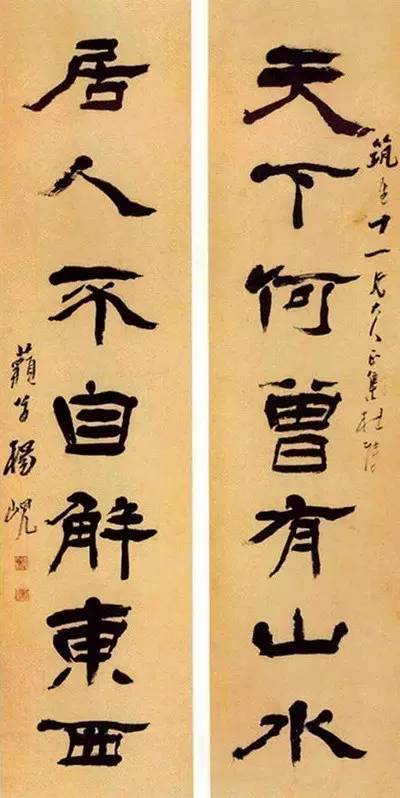 天下何曾有山水
筑十一兄大人正集杜
居人不自解東西
楊峴